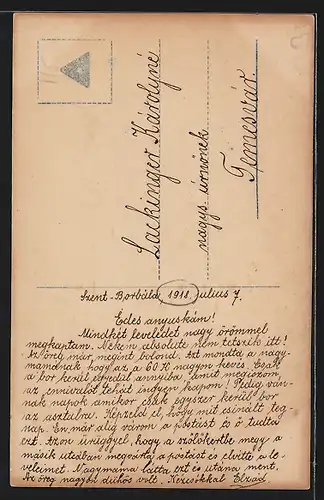 Lackinger Károlyné
nagys. úrnőnek
Temesvár.
Szent-Borbála, 1918. julius 7.
Édes anyuskám!
Mindkét leveledet nagy örömmel
megkaptam. Nekem absolute nem tetszik itt!
Az öreg már megint bolond. Ezt mondta a nagy-
mamának hogy az a 60 K nagyon kevés. Csak
a bor kerül egyedül annyiba, amit megiszom,
az ennivalót tehát ingyen kapom! Pedig van-
nak napok amikor csak egyszer kerül bor
az asztalra. Képzeld el, hogy mit csinált teg-
nap. Én már alig várom a postást és ő tudta
ezt. Azon ürüggyel, hogy a szőlőkertbe megy a
másik utcában megvárta a postást és elvitte a le-
veleimet. Nagymama látta ezt és utána ment.
Az öreg nagyon dühös volt. Kézcsókkal